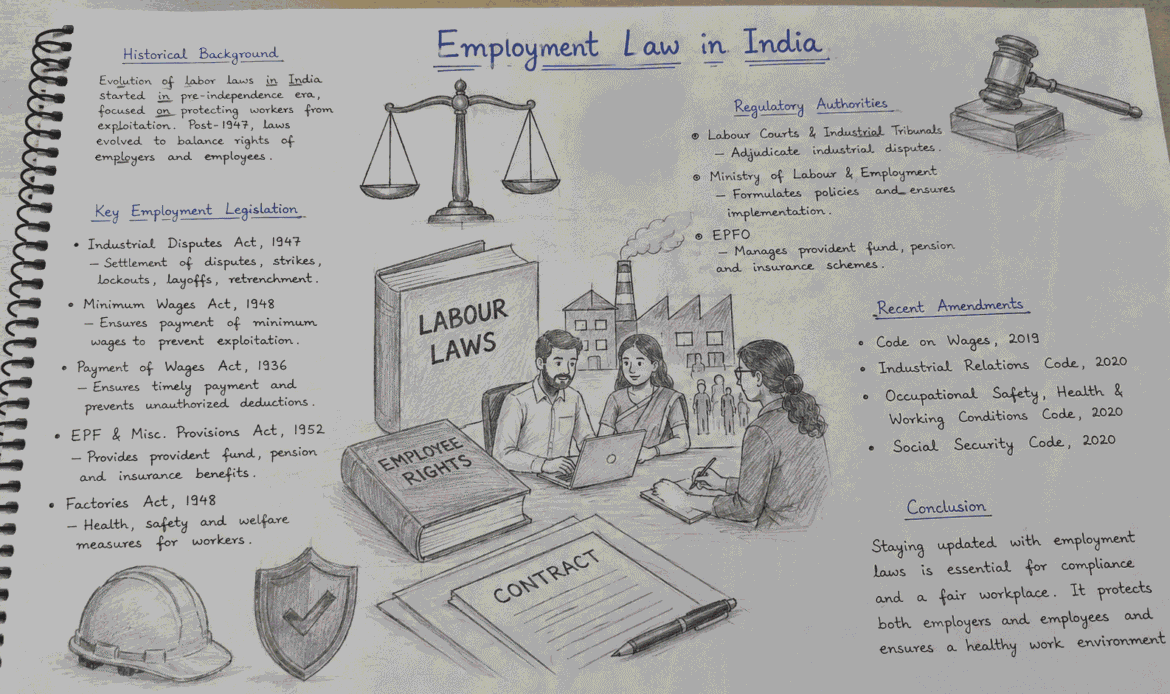 Employment Law in India
Historical Background
Evolution of labor laws in India
started in pre-independence era,
focused on protecting workers from
exploitation. Post-1947, laws
evolved to balance rights of
employers and employees.
Key Employment Legislation
• Industrial Disputes Act, 1947
– Settlement of disputes, strikes,
lockouts, layoffs, retrenchment.
• Minimum Wages Act, 1948
– Ensures payment of minimum
wages to prevent exploitation.
• Payment of Wages Act, 1936
– Ensures timely payment and
prevents unauthorized deductions.
• EPF & Misc. Provisions Act, 1952
– Provides provident fund, pension
and insurance benefits.
• Factories Act, 1948
– Health, safety and welfare
measures for workers.
LABOUR
LAWS
EMPLOYEE
RIGHTS
CONTRACT
Regulatory Authorities
• Labour Courts & Industrial Tribunals
– Adjudicate industrial disputes.
• Ministry of Labour & Employment
– Formulates policies and ensures
implementation.
• EPFO
– Manages provident fund, pension
and insurance schemes.
Recent Amendments
• Code on Wages, 2019
• Industrial Relations Code, 2020
• Occupational Safety, Health &
Working Conditions Code, 2020
• Social Security Code, 2020
Conclusion
Staying updated with employment
laws is essential for compliance
and a fair workplace. It protects
both employers and employees and
ensures a healthy work environment